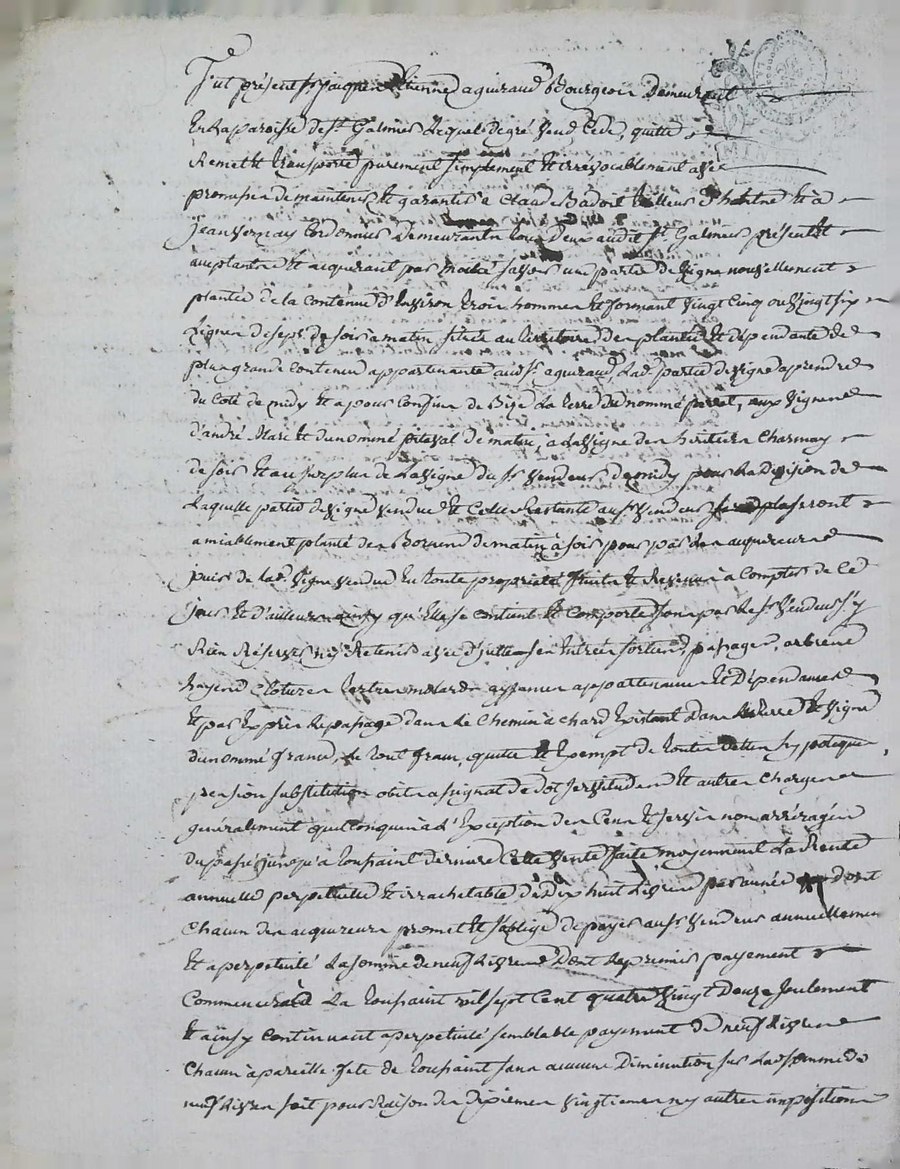 Fut présent Sr Jacque Etienne aguiraud Bourgeois Demeurant
En La paroisse de St Galmier Lequel de gré Vend Cede, quitte
Remet Et transporte purement Simplement Et irrevocablement avec
promesse de maintenir Et garantir a Claude Badoit tailleur d'habits Et a
jean Vernay Cordonnier Demeurants tous Deux audit St Galmier présents Et
acceptants Et acquerant par moitié savoir une partie de Vigne nouvellement
plantée de la contenue d'Environ trois hommes Et formant Vingt Cinq ou Vingt six
Lignes de seps de soir a matin, située au territoire des plantées Et dépendante de
plus grande Contenue appartenante audt Sr aguiraud, Lade partie de Vigne a prendre
du Coté de midy Et a pour Confins de Bize La terre du nommé aux Vignes
d'andré Marc Et du nommé pitaval de matin, a La Vigne des heritiers Charmay
de soir Et au surplus de La Vigne du Sr Vendeur de midy pour La Division de
Laquelle partie de Vigne Vendue Et Celle Restante au Sr Vendeur seront
amiablement planté des Bornes de matin a soir pour par Les acquereurs
jouir de Lade Vigne Vendue En toute propriété fruits Et Revenus a Compter de Ce
jour Et d'ailleurs ainsy qu'Elle se contient Et Comporte sans par Le Sr Vendeur s'y
Rien Réserver ny Retenir avec Entrées sorties, passages, arbres
hayes Clotures aysances appartenances Et Dépendances
Et par Exprès Le passage dans Le Chemin a Chard Existant Dans La terre Et Vigne
du nommé grand, Le tout franc, quitte Et Exempt de toutes Dettes hypoteques,
pension substitution obits assignat de dot servitudes Et autres Charges
généralement quelconques a L'Exception des Cens Et servis non arréragés
du passé jusqu'a toussaint derniere Cette Vente faite moyennant La Rente
annuelle perpetuelle Et irrachetable de Dix huit Livres par année dont
Chacun des acquereurs promet Et s'oblige de payer au Sr Vendeur annuellement
Et a perpetuité La somme de neuf Livres Dont Le premier payement
Commencera a La toussaint mil sept Cent quatre Vingt Douze seulement
Et ainsy continuant a perpetuité semblable payement de neuf Livres
Chacun a pareille fete de toussaint sans aucune Diminution sur Lade somme de
neuf Livres soit pour Raison des dixiemes Vingtiemes ny autres impositions